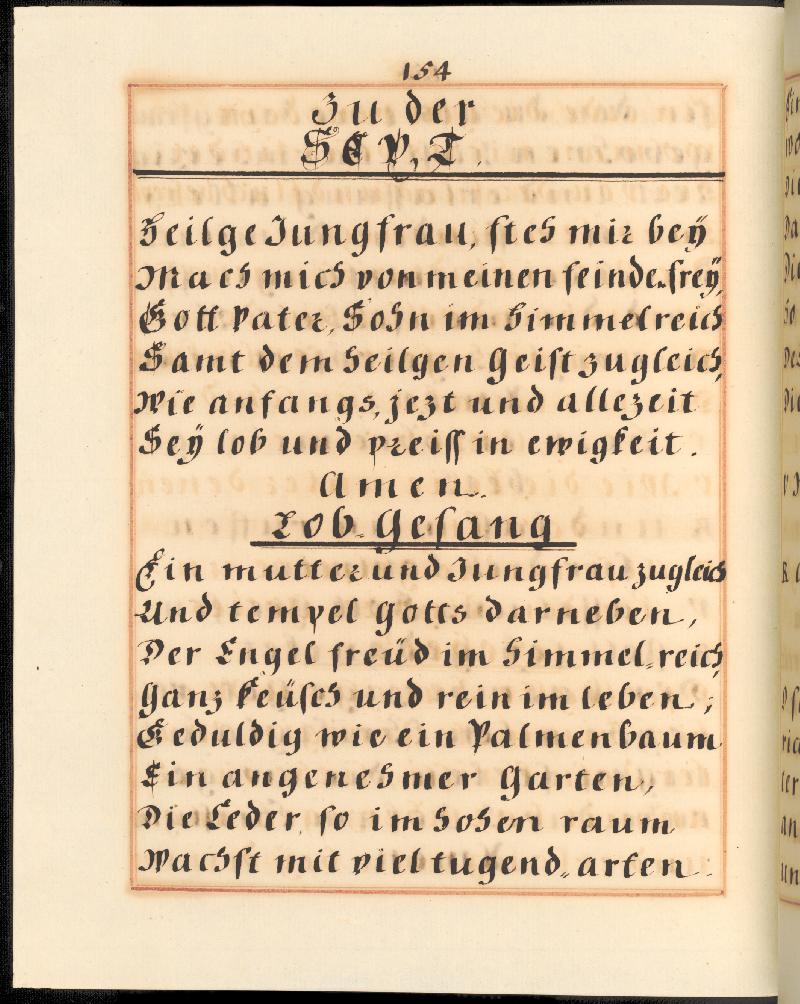 154
Zu der
SEPT.
Heilge Jungfrau, steh mir beÿ
Mach mich von meinen feinden freÿ,
Gott Vater, Sohn im Himmelreich
Samt dem Heilgen Geist zugleich,
Wie anfangs, jezt und allezeit
Seÿ lob und preiß in ewigkeit.
Amen.
Lob-Gesang
Ein mutter und Jungfrau zugleich
Und tempel Gotts darneben,
Der Engel freüd im Himmel-reich,
Ganz keüsch und rein im leben,
Geduldig wie ein Palmenbaum
Ein angenehmer Garten,
Die Ceder so im hohen raum
Wachst mit viel tugend-arten.